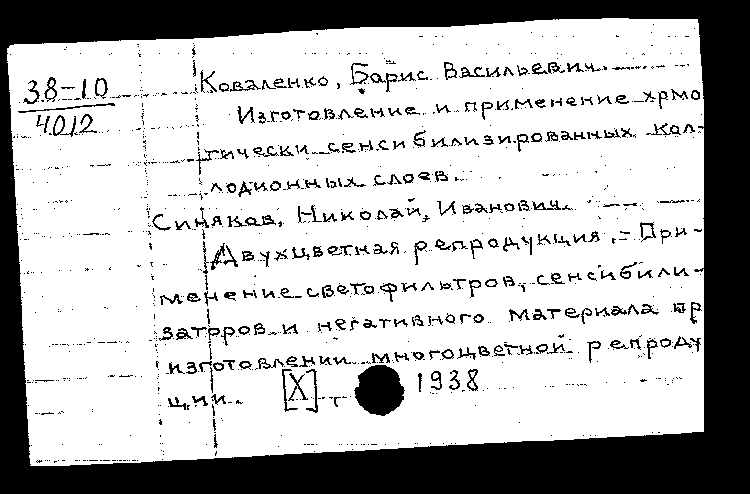 38-10
4012
Коваленко, Барис Васильевич.
Изготовление и применение хрмо
тически сенсибилизированных кол-
лодионных слоев.
Синяков, Николай, Иванович.
Двухцветная репродукция. - При-
менение светофильтров, сенсибили-
заторов и негативного материала пр
изготовлении многоцветной репроду
ции. [X] 1938